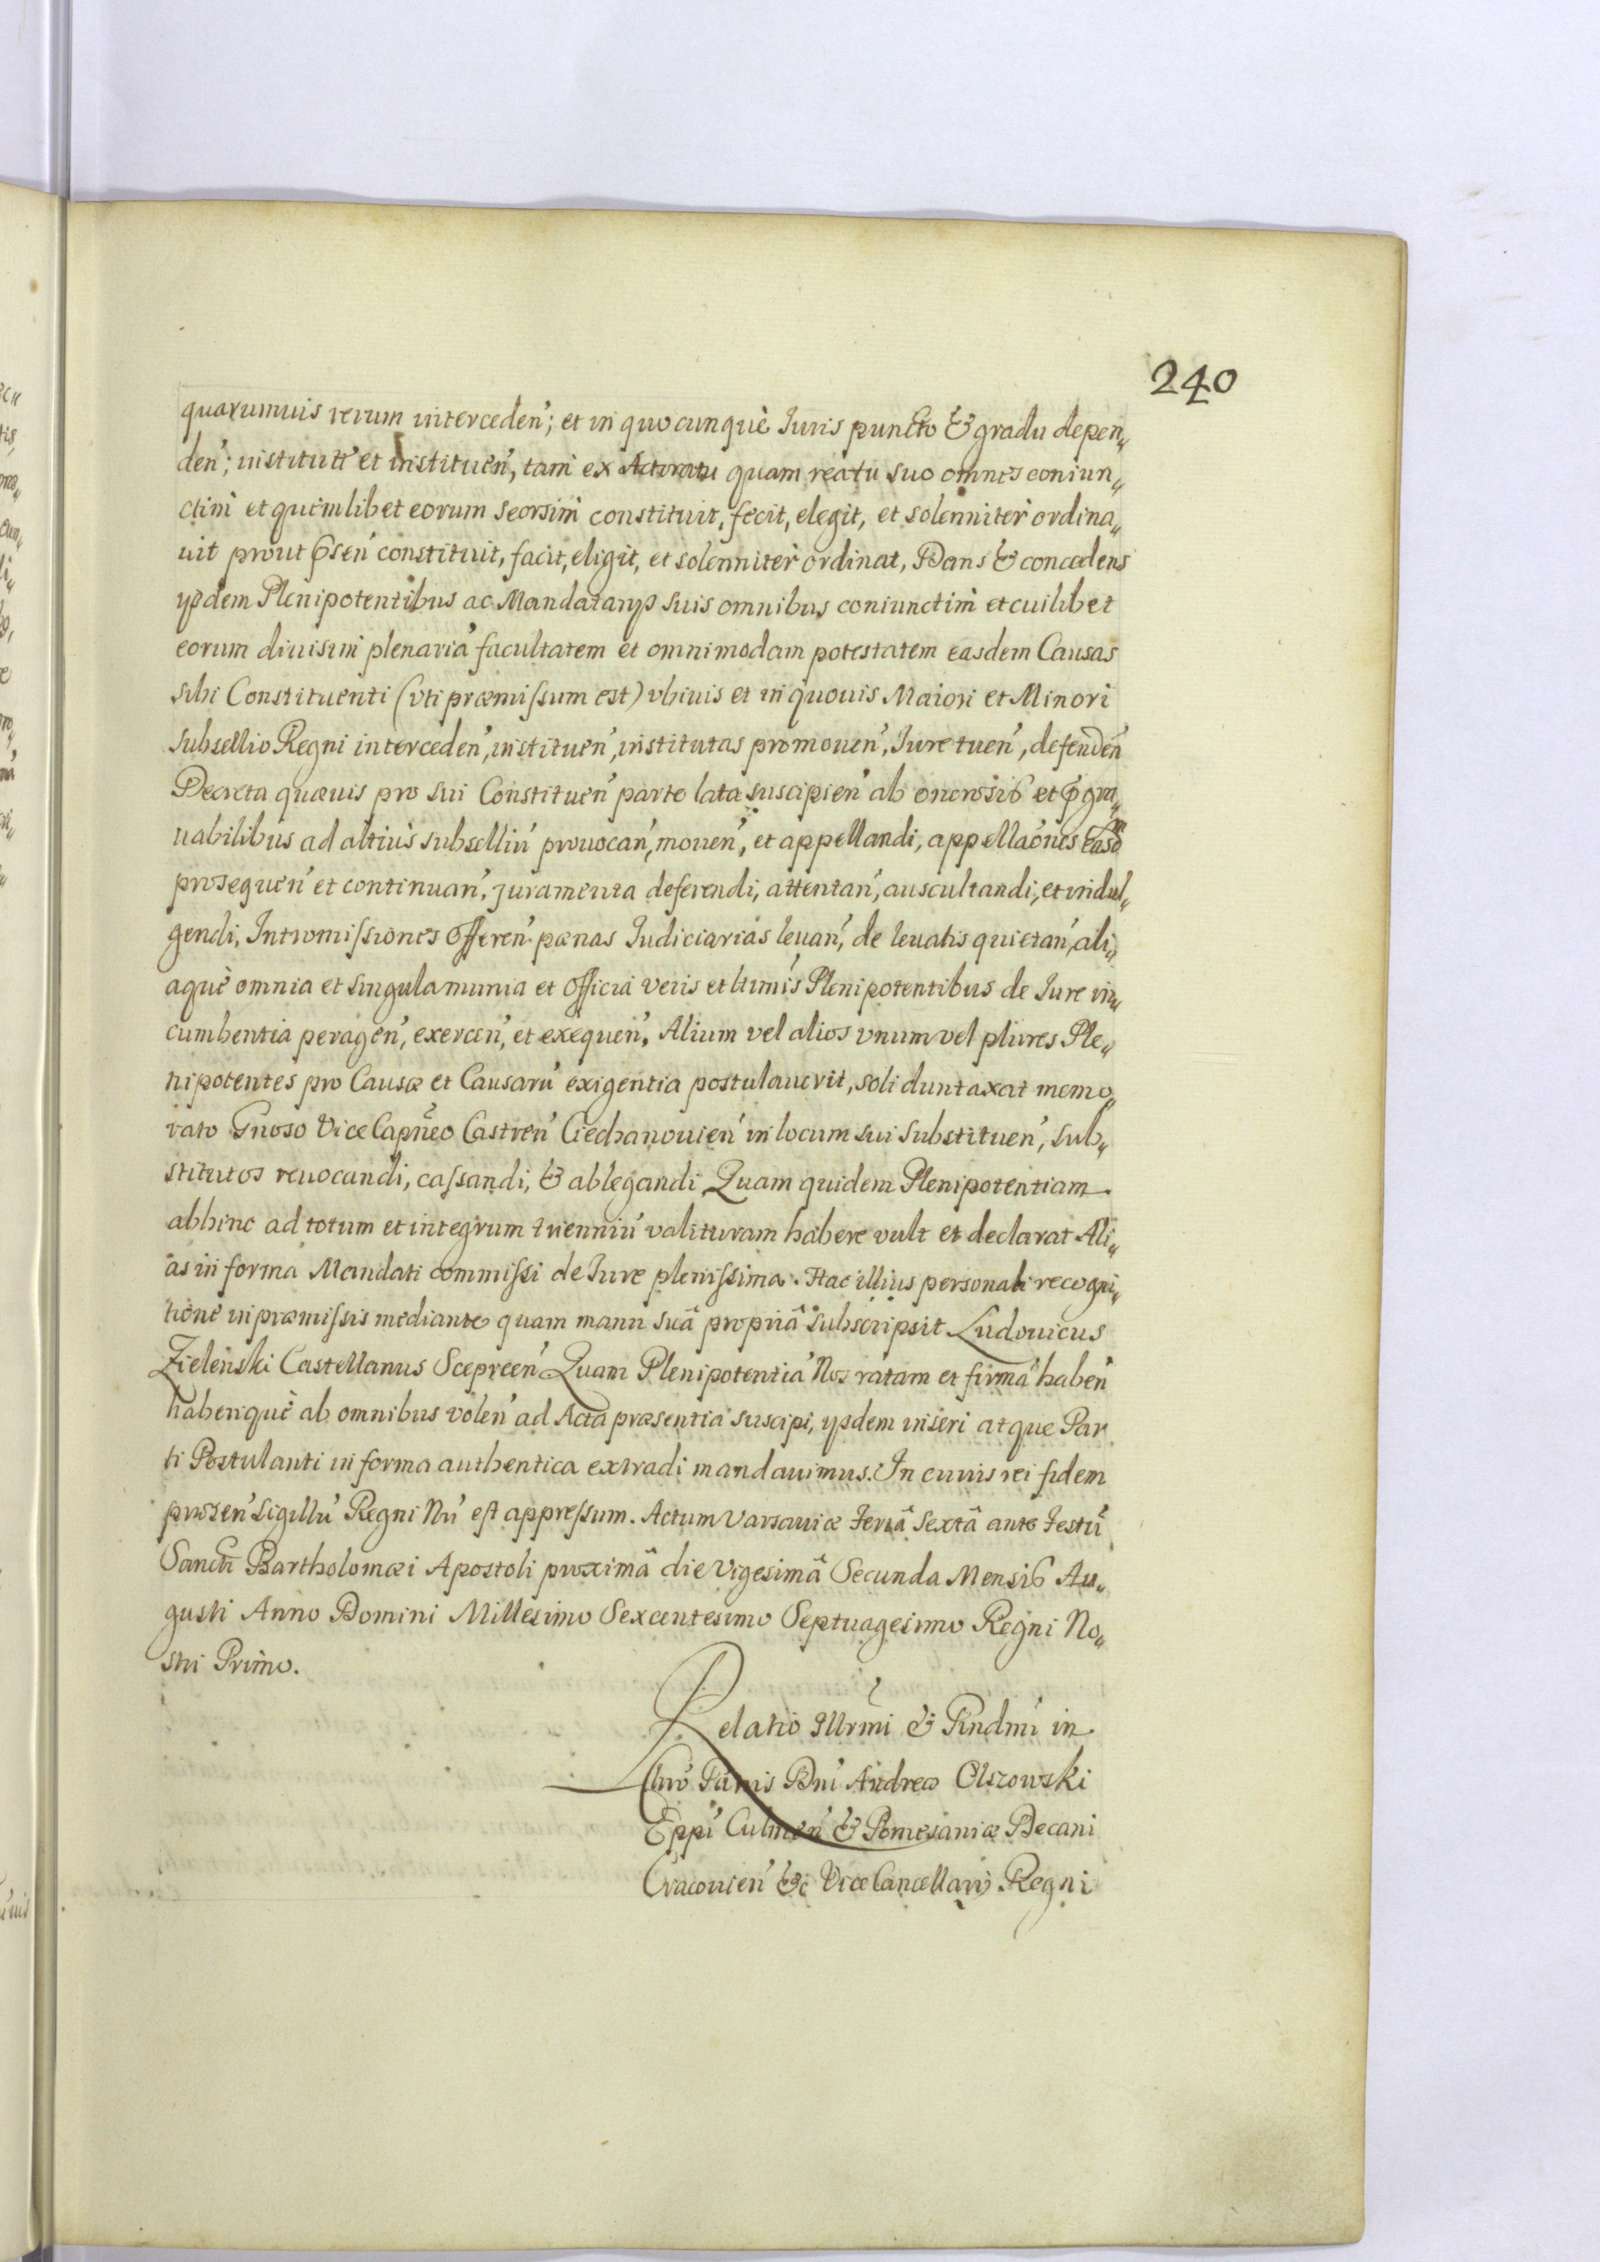 240
quarumuis rerum interceden̄; et in quocunquè Iuris puncto & gradu depen„
den̄; institutē et instituen̄, tam ex Actoratu quam reatu suo omnes coniun„
ctim et quemlibet eorum seorsim constituit, fecit, elegit, et solenniter ordina„
uit prout p̄sen̄ constituit, facit, eligit, et solenniter ordinat, Dans & concedens
ijsdem Plenipotentibus ac Mandatarijs suis omnibus coniunctim et cuilibet
eorum diuisim plenariā facultatem et omnimodam potestatem easdem Causas
sibi Constituenti (vti præmissum est) vbiuis et in quouis Maiori et Minori
Subsellio Regni interceden̄, instituen̄, institutas promouen̄, Iure tuen̄, defenden̄
Decreta quæuis pro sui Constituen̄ parte lata suscipien̄ ab onerosis et p̄gra„
uabilibus ad altius subselliū prouocan̄, mouen̄, et appellandi, appellaōnes easdm
prosequen̄ et continuan̄, juramenta deferendi, attentan̄, auscultandi, et indul„
gendi, Intromissiones offeren̄ pœnas Iudiciarias leuan̄, de leuatis quietan̄, ali„
aquè omnia et singula munia et officia veris et ltimis Plenipotentibus de Iure in„
cumbentia peragen̄, exercen̄, et exequen̄. Alium vel alios vnum vel plures Ple„
nipotentes pro Causæ et Causarū exigentia postulauerit, soli duntaxat memo„
rato Gnoso Vice Capn̄eo Castren̄ Ciechanouien̄ in locum sui substituen̄, sub„
stitutos reuocandi, cassandi, & ablegandi Quam quidem Plenipotentiam
abhinc ad totum et integrum trienniū valituram habere vult et declarat Ali„
as in forma Mandati commissi de Iure plenissima. Hac illius personali recogni„
tione in præmissis mediante quam manu suâ propriâ subscripsit Ludouicus
Zielenski Castellanus Sceprcen̄ Quam Plenipotentiā Nos ratam et firmā haben̄
haberiquè ab omnibus volen̄ ad Acta præsentia suscipi, ijsdem inseri atque Par
ti Postulanti in forma authentica extradi mandauimus. In cuius rei fidem
præsen̄ Sigillū Regni Nrī est appressum. Actum Varsauiæ Feriâ Sextâ ante Festū
Sancti Bartholomæi Apostoli proximâ die Vigesimâ Secunda Mensis Au„
gusti Anno Domini Millesimo Sexcentesimo Septuagesimo Regni No„
stri Primo.
Relatio Illrmi & Rndmi in
Chrō Patris Dnī Andreæ Olszowski
Eppī Culmen̄ & Pomesaniæ Decani
Cracouien̄ &c Vice Cancellarij Regni